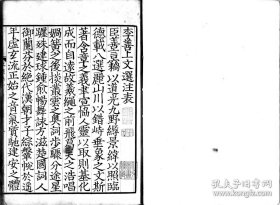 李善上文選注表
臣善言竊以道光九野縟景緯以照臨
德載八埏麗山川以錯峙垂象之文斯
著含章之義聿宣協人靈以取則基化
成而自遠故羲繩之前飛葛天之浩唱
媧簧之後掞叢雲之奧詞步驟分途星
躔殊建球鍾愈暢舞詠方滋楚國詞人
御蘭芬於絕代漢朝才子綜鞶帨於遙
年虛玄流正始之音氣質馳建安之體
孔夫子旧书网